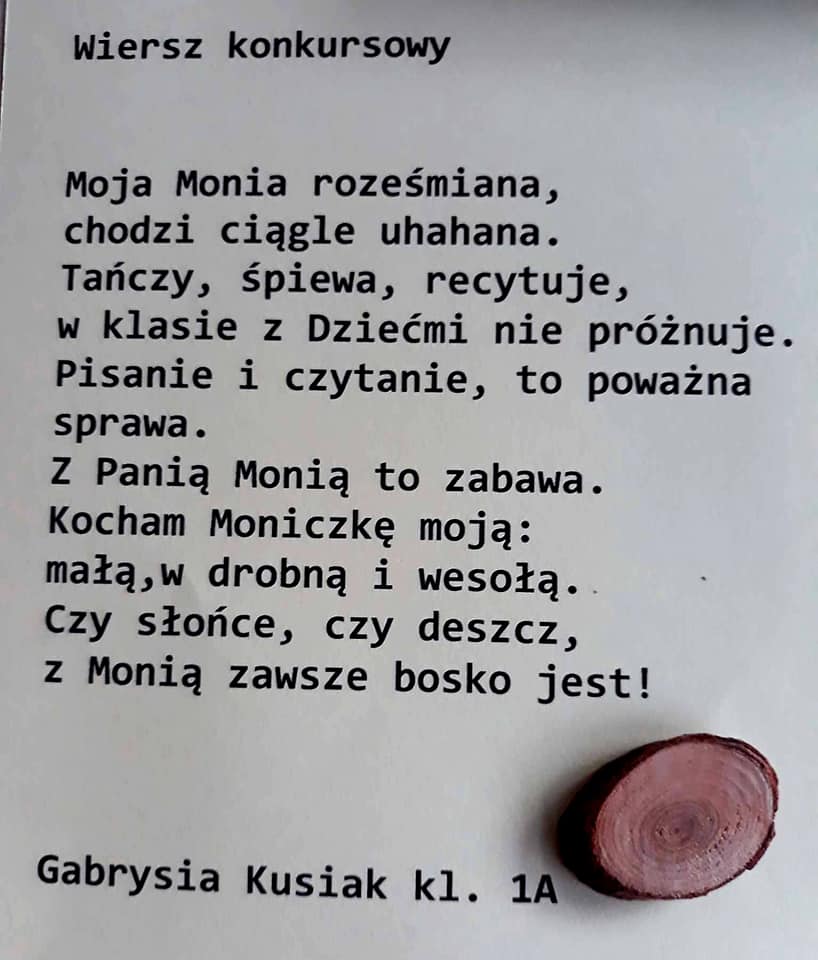 Wiersz konkursowy
Moja Monia roześmiana,
chodzi ciągle uhahana.
Tańczy, śpiewa, recytuje,
w klasie z Dziećmi nie próżnuje.
Pisanie i czytanie, to poważna
sprawa.
Z Panią Monią to zabawa.
Kocham Moniczkę moją:
małą,w drobną i wesołą.
Czy słońce, czy deszcz,
z Monią zawsze bosko jest!
Gabrysia Kusiak kl. 1A